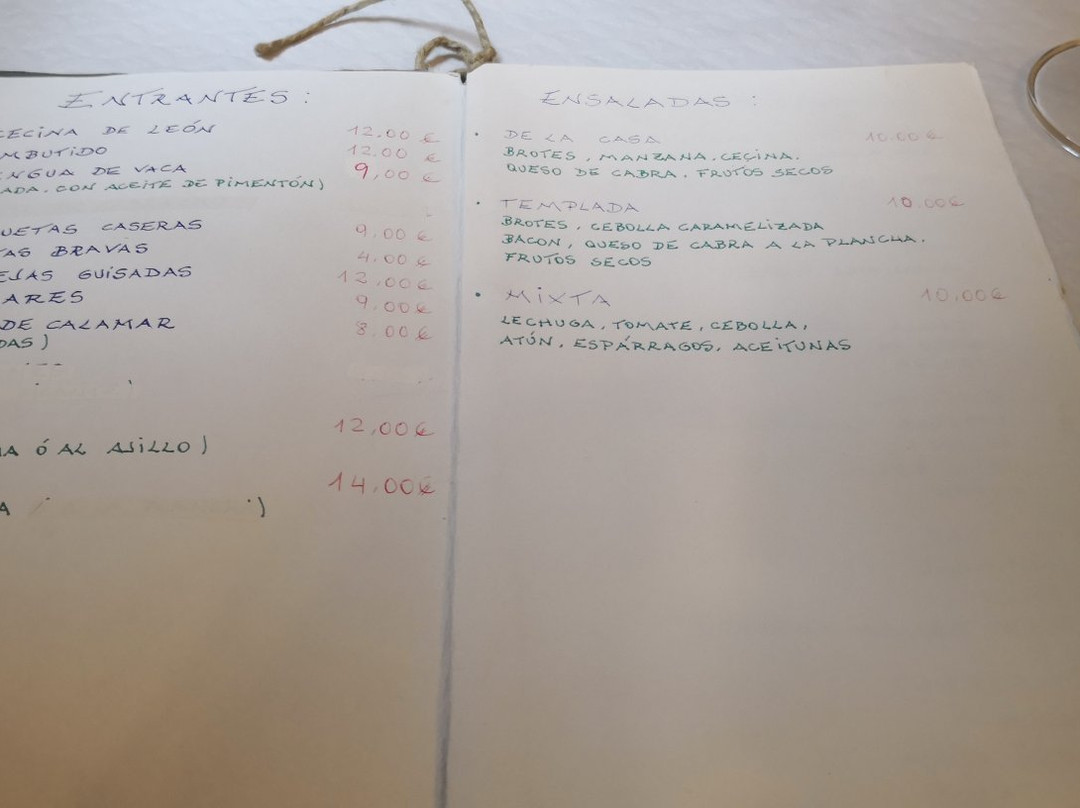 ENTRANTES:
CECINA DE LEÓN 12,00 €
MBUTIDO 12,00 €
NGUA DE VACA 9,00 €
ADA. CON ACEITE DE PIMENTÓN)
UETAS CASERAS 9,00 €
AS BRAVAS 4,00 €
EJAS GUISADAS 12,00 €
ARES 9,00 €
DE CALAMAR 8,00 €
DAS)
12,00 €
A Ó AL AJILLO)
14,00 €
A )
ENSALADAS:
· DE LA CASA 10,00 €
BROTES, MANZANA, CECINA.
QUESO DE CABRA. FRUTOS SECOS
· TEMPLADA 10,00 €
BROTES, CEBOLLA CARAMELIZADA
BACON, QUESO DE CABRA A LA PLANCHA.
FRUTOS SECOS
· MIXTA 10,00 €
LECHUGA, TOMATE, CEBOLLA,
ATÚN, ESPÁRRAGOS, ACEITUNAS